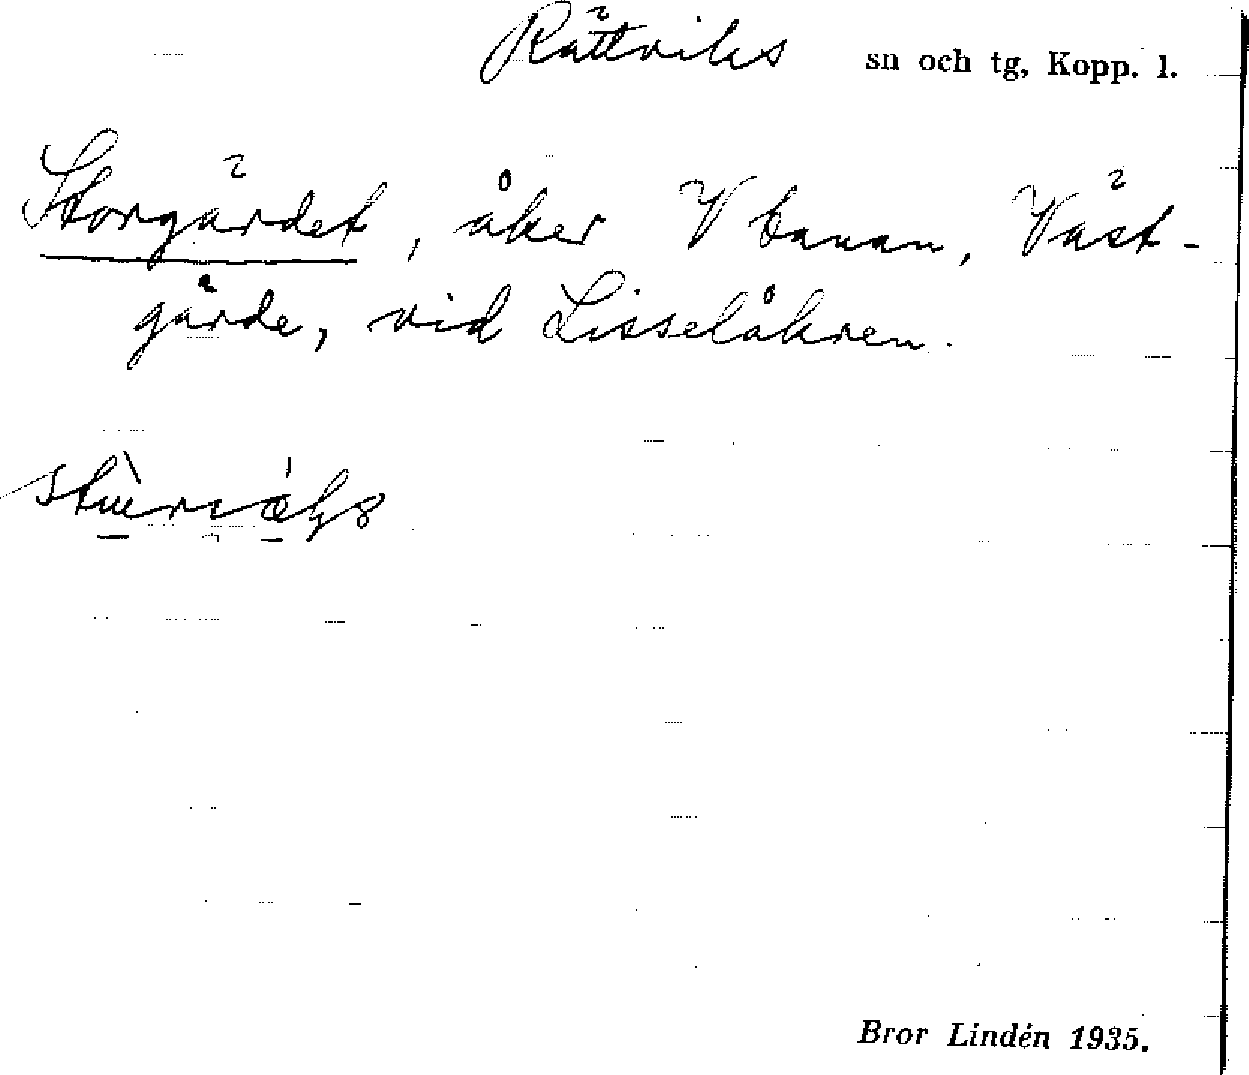 Rättviks sn och tg, Kopp. l.
Storgärdet, åker V banan, Väst-
gärde, vid Lisselåkren.
Bror Lindén 1935.